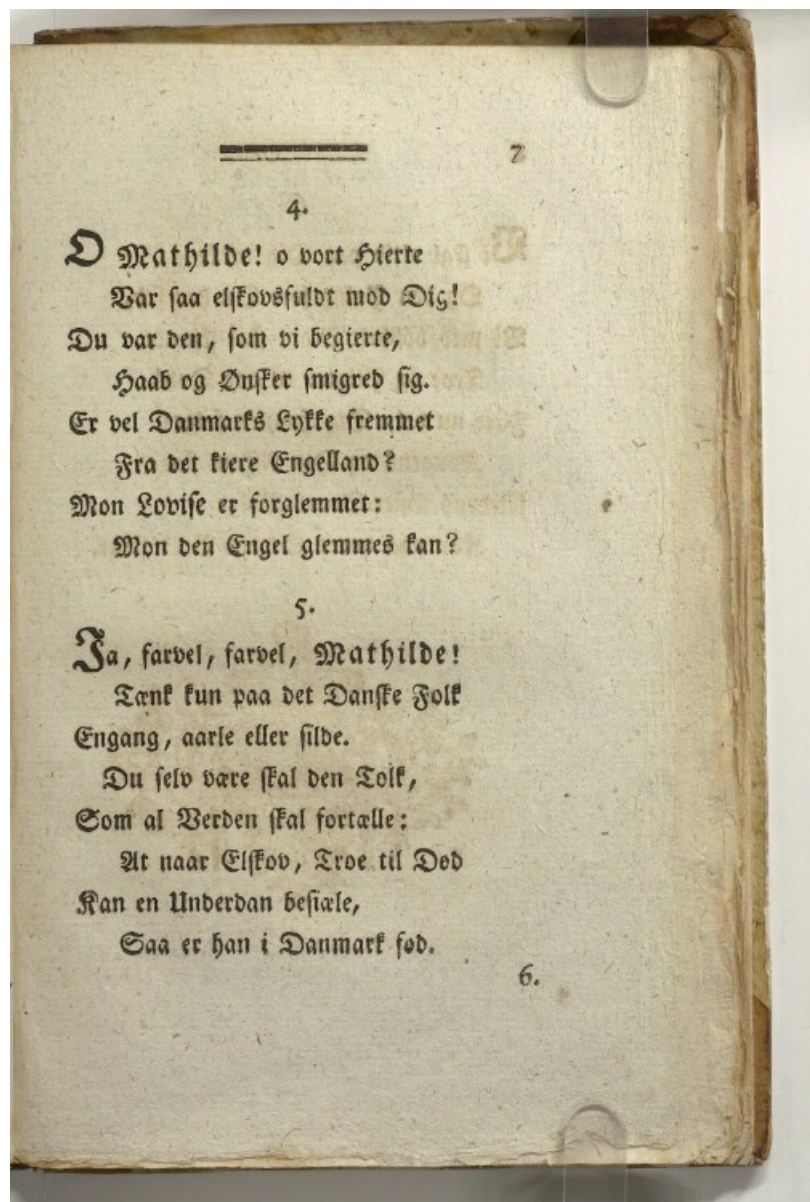 7
4.
O Mathilde! o vort Hierte
Var saa elskovsfuldt mod Dig!
Du var den, som vi begierte,
Haab og Ønsker smigred sig.
Er vel Danmarks Lykke fremmet
Fra det kiere Engelland?
Mon Lovise er forglemmet:
Mon den Engel glemmes kan?
5.
Ja, farvel, farvel, Mathilde!
Tænk kun paa det Danske Folk
Engang, aarle eller silde.
Du selv være skal den Tolk,
Som al Verden skal fortælle:
At naar Elskov, Troe til Død
Kan en Underdan besiæle,
Saa er han i Danmark fød.
6.